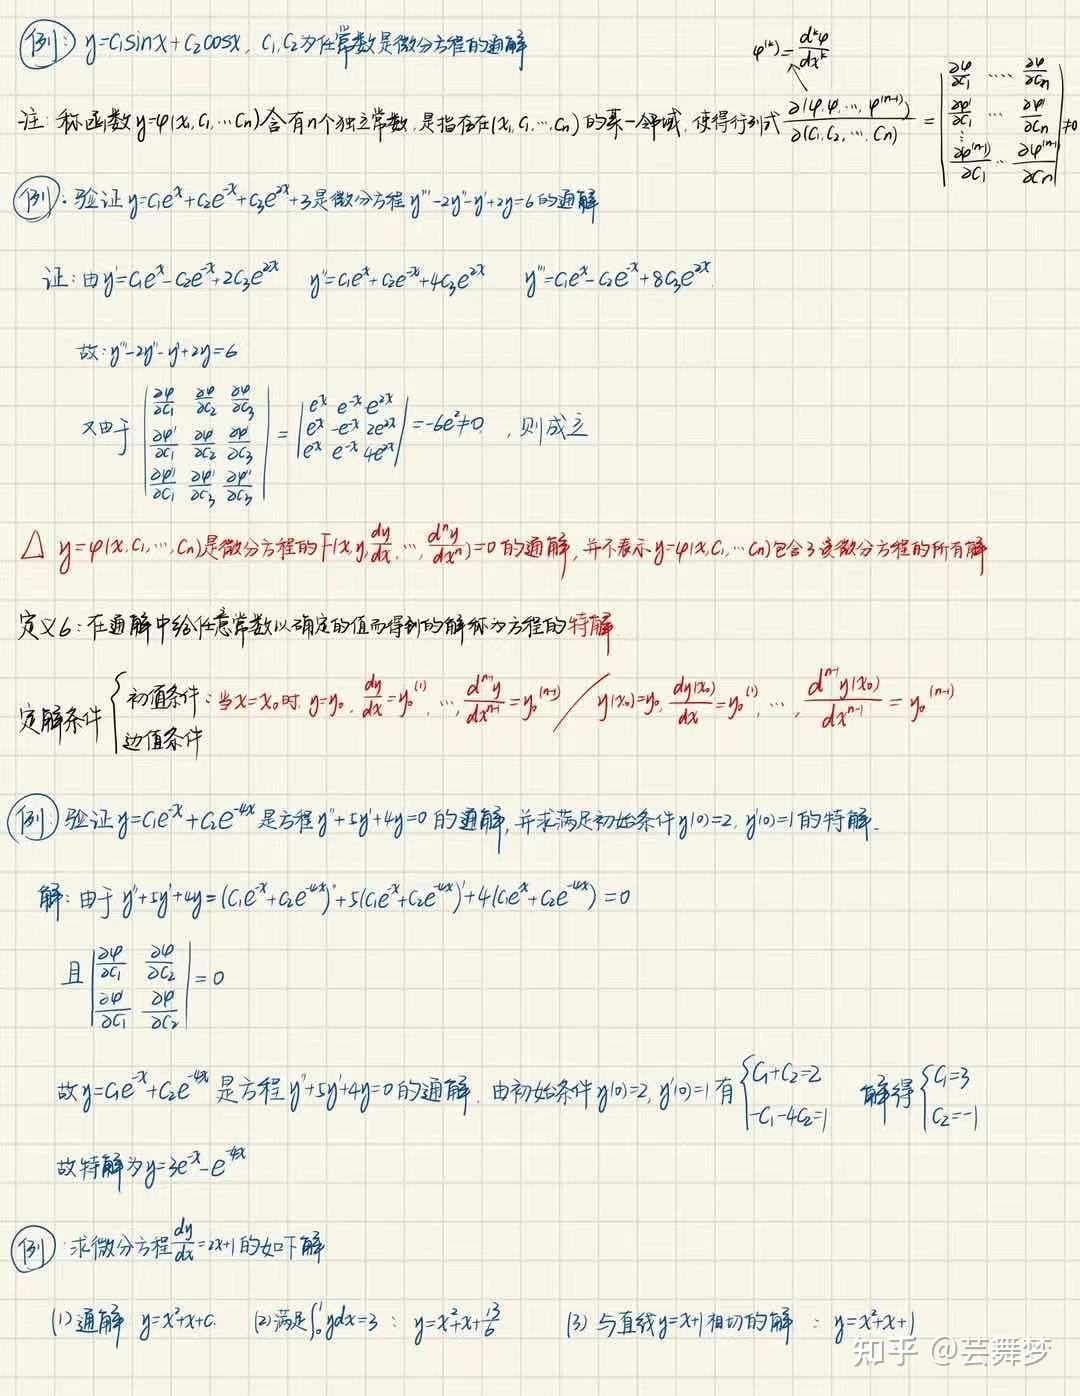 例: y=C₁sinx+C₂cosx, C₁,C₂为任常数是微分方程的通解
φ⁽ᵏ⁾=dᵏφ/dxᵏ
注: 称函数y=φ(x,C₁,…Cn)含有n个独立常数,是指存在(x,C₁,…,Cn)的某一邻域,使得行列式 ∂(φ,φ',…,φ⁽ⁿ⁻¹⁾)/∂(C₁,C₂,…,Cn) = |∂φ/∂C₁ …. ∂φ/∂Cn; ∂φ'/∂C₁ … ∂φ'/∂Cn; ⋮ ∂φ⁽ⁿ⁻¹⁾/∂C₁ … ∂φ⁽ⁿ⁻¹⁾/∂Cn| ≠0
例: 验证y=C₁eˣ+C₂e⁻ˣ+C₃e²ˣ+3是微分方程y'''-2y''-y'+2y=6的通解
证:由y'=C₁eˣ-C₂e⁻ˣ+2C₃e²ˣ y''=C₁eˣ+C₂e⁻ˣ+4C₃e²ˣ y'''=C₁eˣ-C₂e⁻ˣ+8C₃e²ˣ.
故:y'''-2y''-y'+2y=6
又由于 |∂φ/∂C₁ ∂φ/∂C₂ ∂φ/∂C₃; ∂φ'/∂C₁ ∂φ'/∂C₂ ∂φ'/∂C₃; ∂φ''/∂C₁ ∂φ''/∂C₃ ∂φ''/∂C₃| = |eˣ e⁻ˣ e²ˣ; eˣ -e⁻ˣ 2e²ˣ; eˣ e⁻ˣ 4e²ˣ| =-6e²≠0, 则成立
△ y=φ(x,C₁,…,Cn)是微分方程的F(x,y,dy/dx,…,dⁿy/dxⁿ)=0的通解,并不表示y=φ(x,C₁,…Cn)包含了该微分方程的所有解
定义6:在通解中给任意常数以确定的值而得到的解称为方程的特解
定解条件 { 初值条件: 当x=x₀时,y=y₀, dy/dx=y₀⁽¹⁾,…,dⁿ⁻¹y/dxⁿ⁻¹=y₀⁽ⁿ⁻¹⁾ / y(x₀)=y₀, dy(x₀)/dx=y₀⁽¹⁾,…, dⁿ⁻¹y(x₀)/dxⁿ⁻¹=y₀⁽ⁿ⁻¹⁾
边值条件
例: 验证y=C₁e⁻ˣ+C₂e⁻⁴ˣ是方程y''+5y'+4y=0的通解,并求满足初始条件y(0)=2, y'(0)=1的特解.
解:由于y''+5y'+4y=(C₁e⁻ˣ+C₂e⁻⁴ˣ)''+5(C₁e⁻ˣ+C₂e⁻⁴ˣ)'+4(C₁e⁻ˣ+C₂e⁻⁴ˣ)=0
且 |∂φ/∂C₁ ∂φ/∂C₂; ∂φ'/∂C₁ ∂φ'/∂C₂| =0
故y=C₁e⁻ˣ+C₂e⁻⁴ˣ是方程y''+5y'+4y=0的通解. 由初始条件y(0)=2, y'(0)=1有 {C₁+C₂=2; -C₁-4C₂=1 解得 {C₁=3; C₂=-1
故特解为y=3e⁻ˣ-e⁻⁴ˣ
例: 求微分方程dy/dx=2x+1的如下解
(1)通解 y=x²+x+C. (2)满足∫₀¹ydx=3: y=x²+x+13/6 (3)与直线y=x+1相切的解: y=x²+x+1
知乎 @芸舞梦